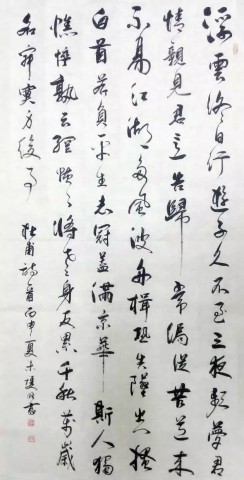 浮雲终日行遊子久不至三夜頻夢君
情親見君意告歸常侷促苦道来
不易江湖多風波舟楫恐失墜出搔
白首若負平生志冠蓋滿京華斯人獨
憔悴孰云網恢々將老身反累千秋萬歲
名寂寞身後事
杜甫詩一首丙申夏書